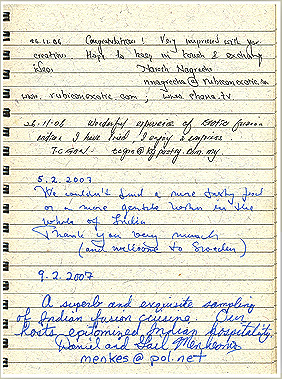 26.11.06 Congratulations! Very impressed with your
creation. Hope to keep in touch & exchange
ideas Naresh Nagrecha
nnagrecha@rubiconexotic.
www.rubiconexotic.com;
26-11-06 Wonderful experience of Exotic fusion
Indian I have tried I enjoy & impress
5.2.2007
We couldn't find a more tasty food
or a more gentile in the
whole of India
Thank you very much
(and wellcome to Sweden)
9.2.2007
A superb and exquisite sampling
of Indian fusion cuisine. Our
hosts epitomized Indian hospitality.
Daniel and Gail Menkens
menkes@pol.net